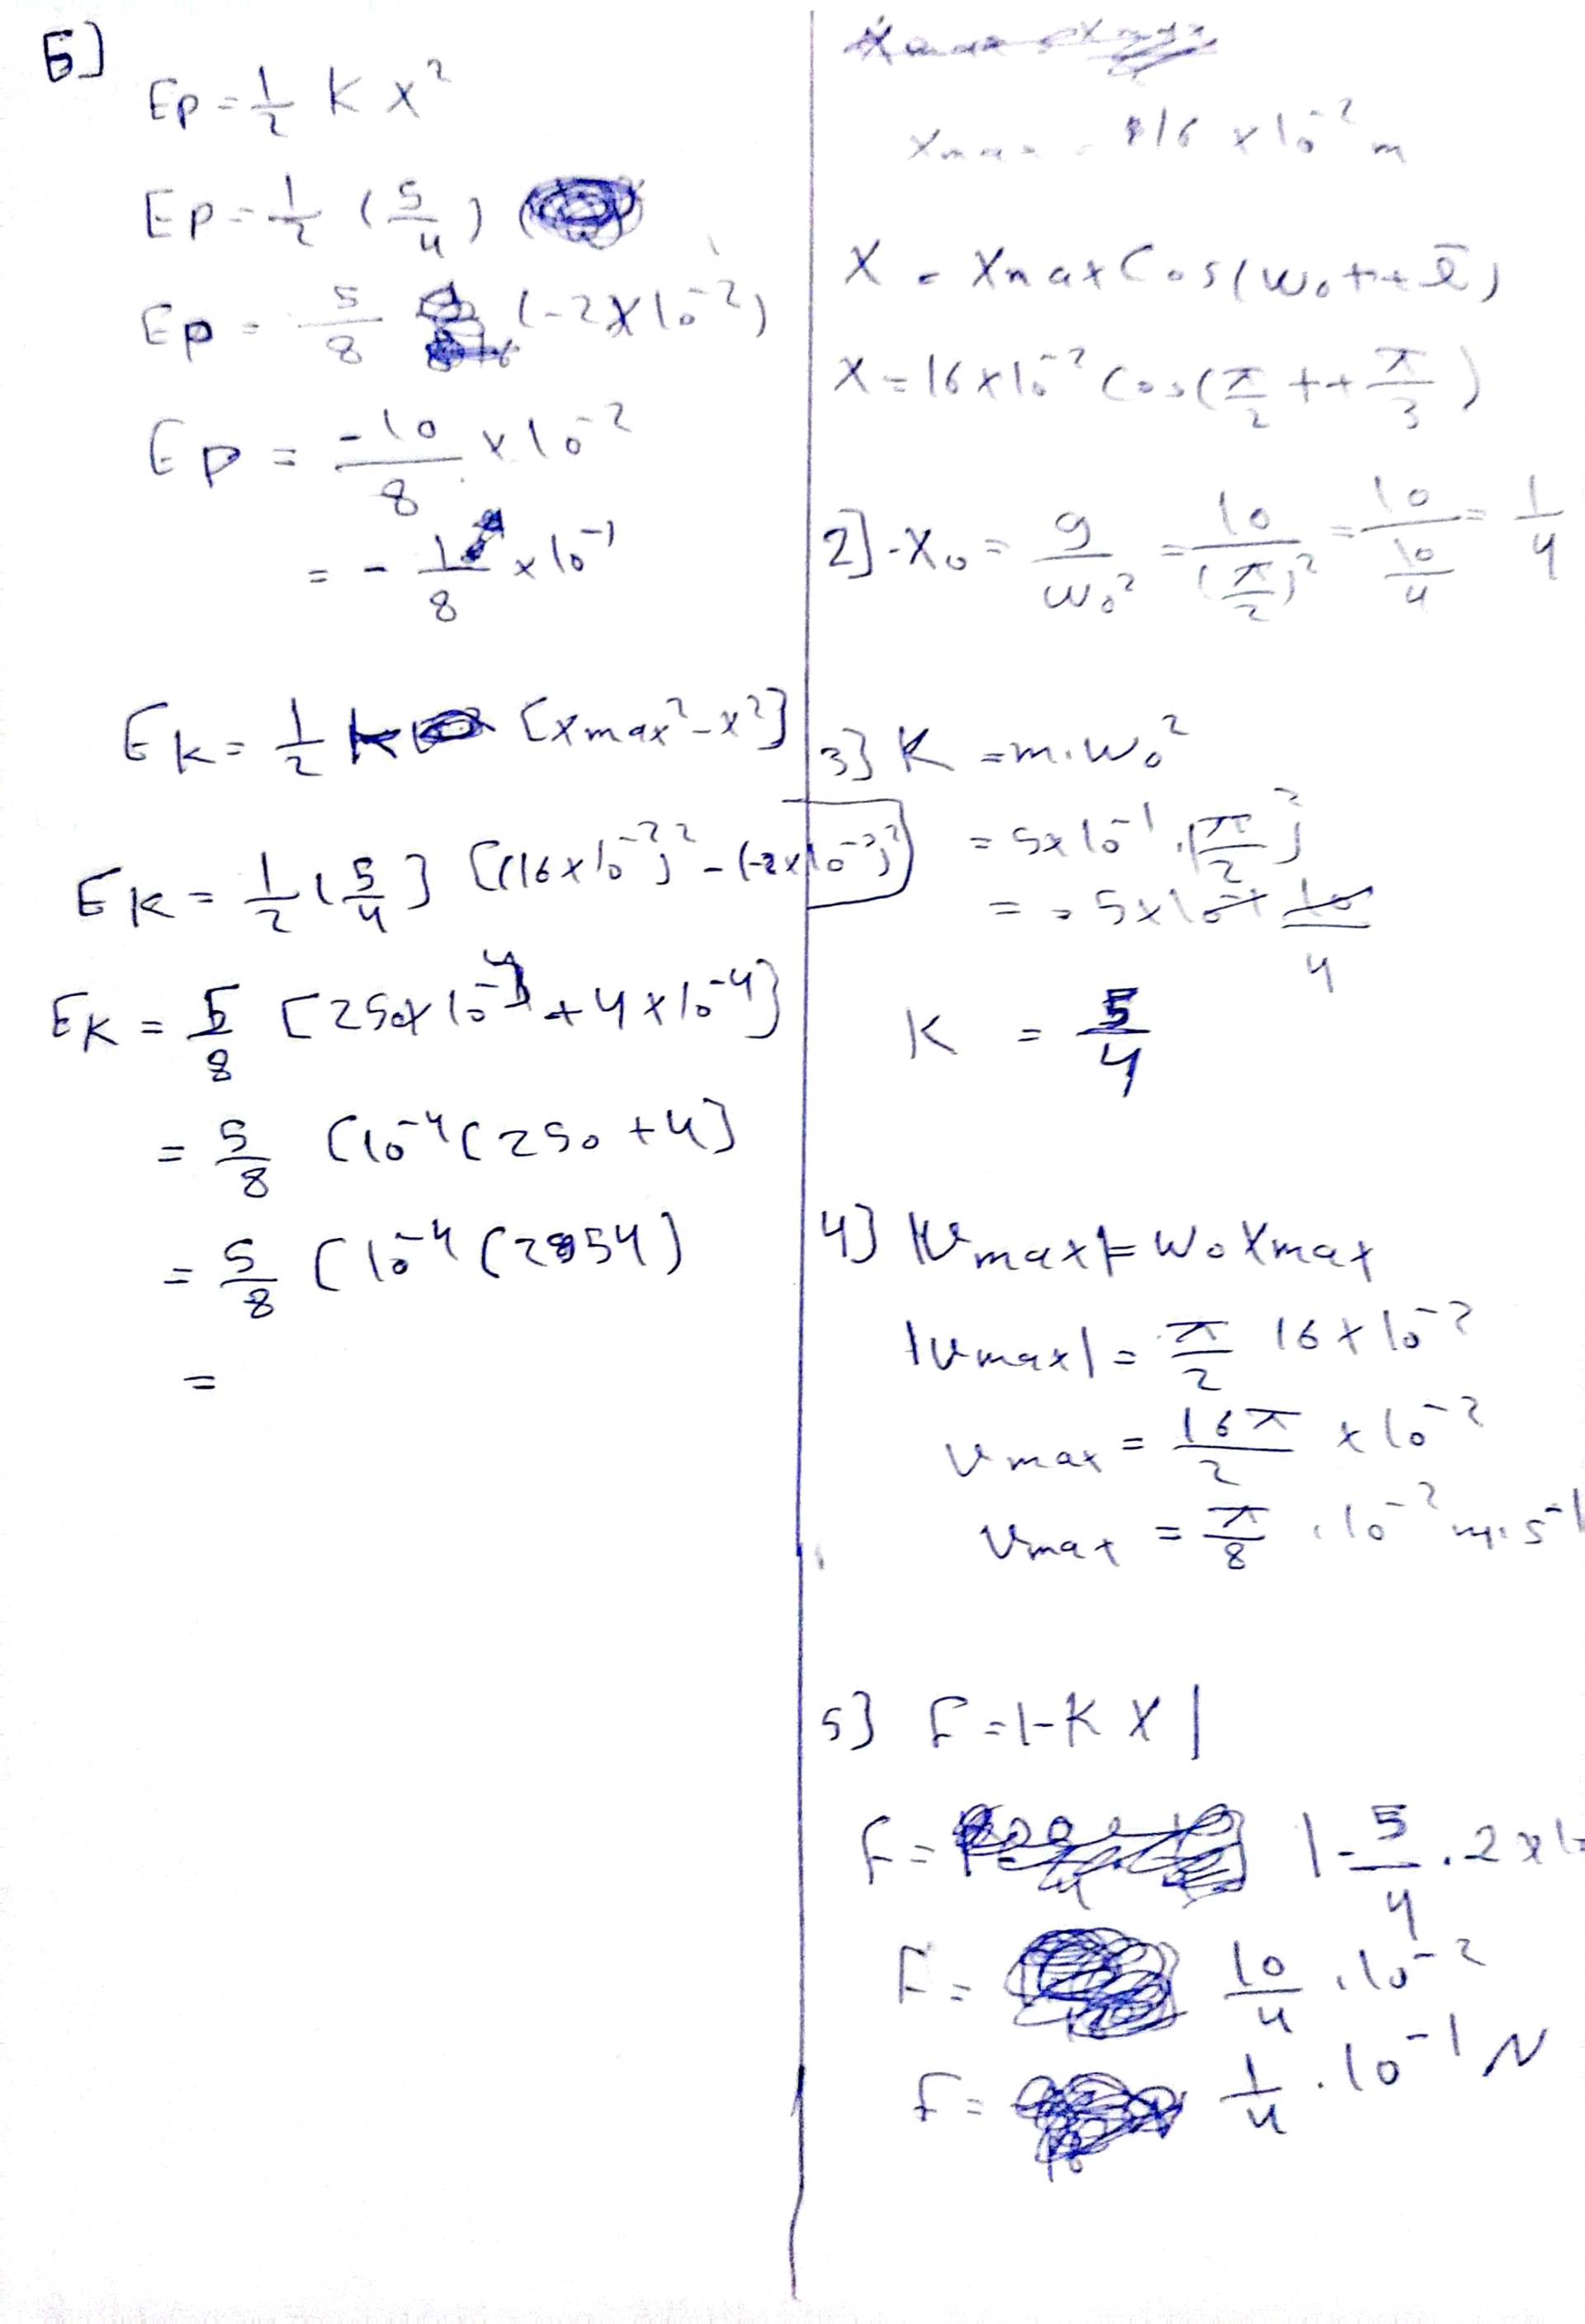 6]
Ep = 1/2 K x²
Ep = 1/2 (5/4)
Ep = 5/8 (-2×10⁻²)
Ep = -10/8 × 10⁻²
= - 1/8 × 10⁻¹
Ek = 1/2 k [xmax² - x²]
Ek = 1/2 (5/4] [(16×10⁻²)² - (-2×10⁻²)²]
Ek = 5/8 [250×10⁻⁴ + 4×10⁻⁴]
= 5/8 (10⁻⁴ (250 + 4]
= 5/8 (10⁻⁴ (254)
=
Xmax = 16 × 10⁻² m
X = Xmax Cos(ω₀t + φ̄)
X = 16×10⁻² Cos(π/2 t + π/3)
2] -X₀ = g/ω₀² = 10/(π/2)² = 10/(10/4) = 1/4
3} K = m.ω₀²
= 5×10⁻¹ . (π/2)²
= = 5×10⁻¹ × 10/4
K = 5/4
4} |Vmax| = ω₀ Xmax
|Vmax| = π/2 16×10⁻²
Vmax = 16π/2 × 10⁻²
Vmax = π/8 . 10⁻² m.s⁻¹
5} F = |-K X|
F = |- 5/4 . 2×10
F = 10/4 . 10⁻²
F = 1/4 . 10⁻¹ N